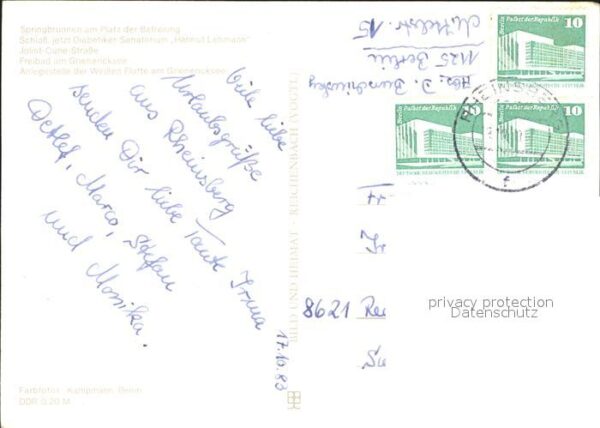 Springbrunnen am Platz der Befreiung
Schloß, jetzt Diabetiker-Sanatorium „Helmut Lehmann“
Joliot-Curie-Straße
Freibad am Grienericksee
Anlegestelle der Weißen Flotte am Grienericksee
Viele liebe
Urlaubsgrüße
aus Rheinsberg
senden Dir liebe Tante Irma
Detlef, Marco, Stefan
und Monika.
17.10.83
Farbfoto: Kampmann, Berlin
DDR 0,20 M
BILD UND HEIMAT REICHENBACH (VOGTL)
Abs.: D.
1125 Berlin
Mittelstr. 15
10
Berlin, Palast der Republik
DEUTSCHE DEMOKRATISCHE REPUBLIK
10
Berlin, Palast der Republik
DEUTSCHE DEMOKRATISCHE REPUBLIK
10
Berlin, Palast der Republik
DEUTSCHE DEMOKRATISCHE REPUBLIK
RHEINSBERG
8621
privacy protection
Datenschutz